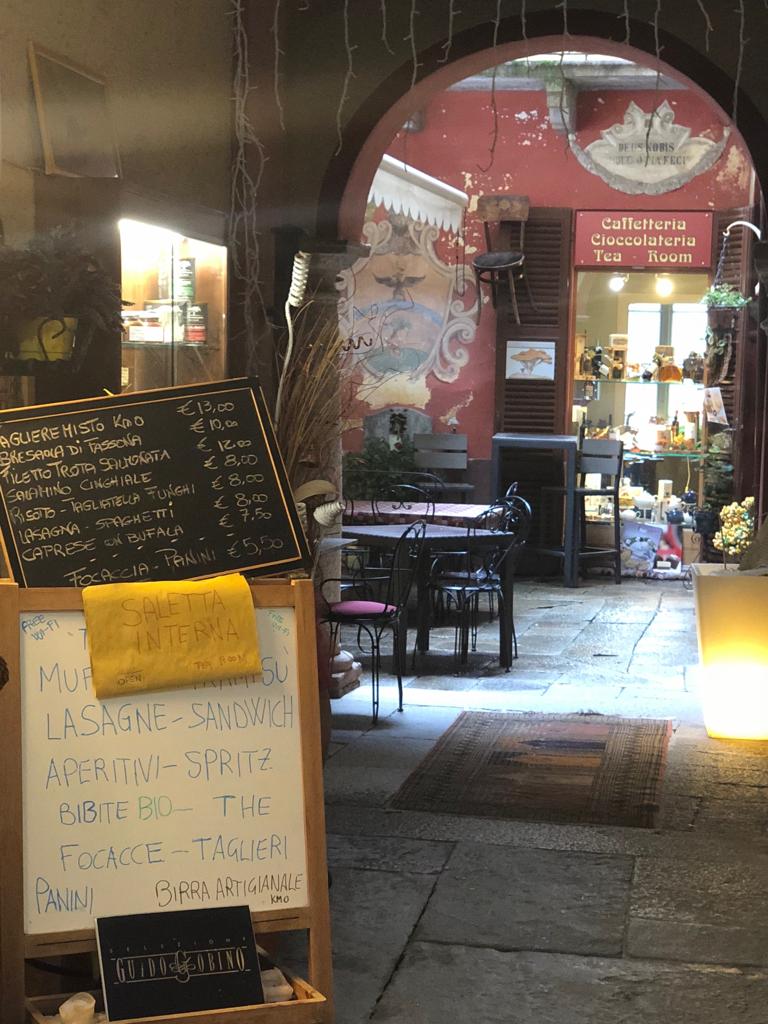 DEUS NOBIS
Caffetteria
Cioccolateria
Tea Room
AGLIERE MISTO KM0 € 13,00
BRESAOLA DI FASSONA € 10,00
FILETTO TROTA SALMONATA € 12,00
SALAMINO CINGHIALE € 8,00
RISOTO - TAGLIATELLA FUNGHI € 8,00
LASAGNA - SPAGHETTI € 8,00
CAPRESE CON BUFALA € 7,50
FOCACCIA - PANINI € 5,50
SALETTA
INTERNA
OPEN TEA ROOM
FREE
WI-FI
MUF
LASAGNE - SANDWICH
APERITIVI - SPRITZ
BIBITE BIO - THE
FOCACCE - TAGLIERI
PANINI BIRRA ARTIGIANALE
KM0
SELEZIONE
GUIDO GOBINO